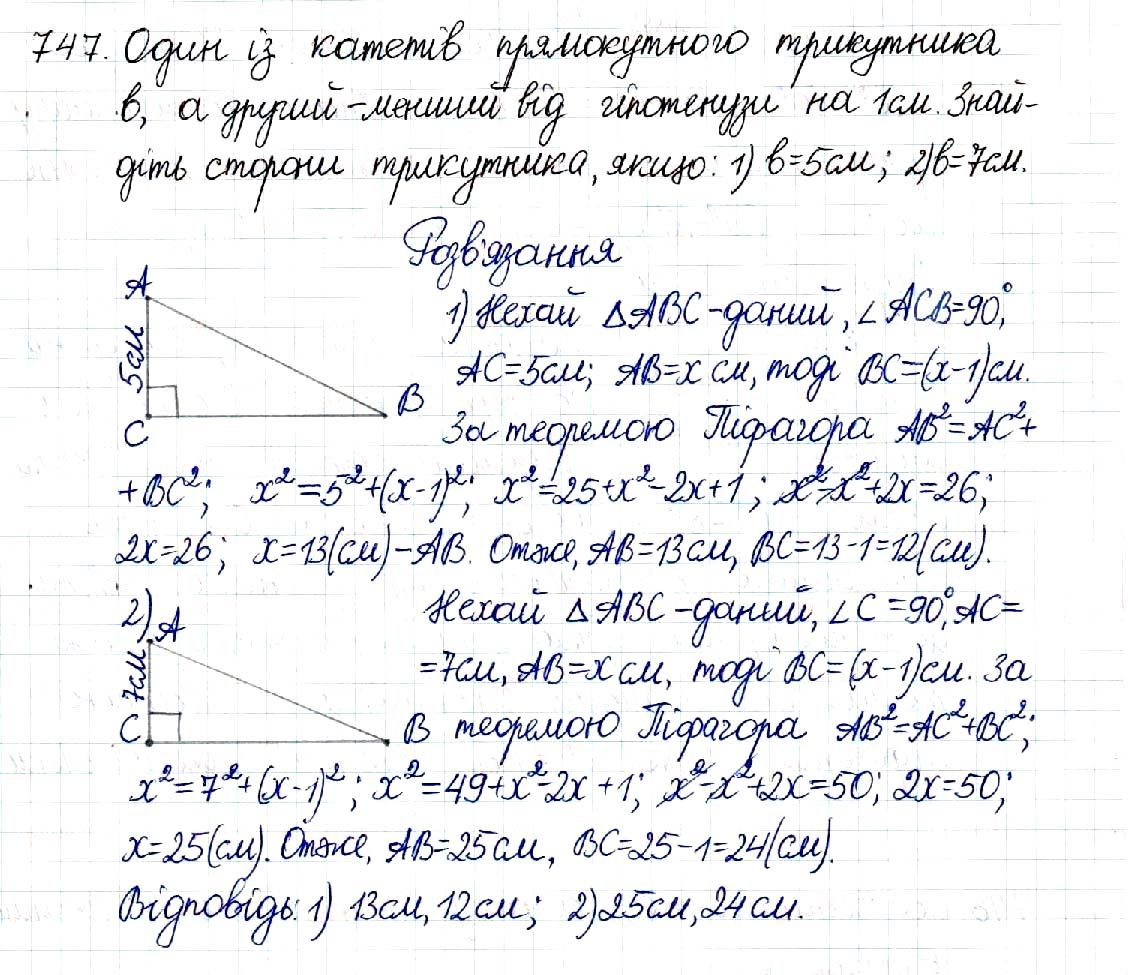 747. Один із катетів прямокутного трикутника
в, а другий - менший від гіпотенузи на 1 см. Знай-
діть сторони трикутника, якщо: 1) в=5см; 2) в=7см.
Розв'язання
A
5см
C
B
1) Нехай ΔABC - даний, ∠ACB=90°,
AC=5см; AB=x см, тоді BC=(x-1)см.
За теоремою Піфагора AB²=AC²+
+BC²; x²=5²+(x-1)²; x²=25+x²-2x+1; x²-x²+2x=26;
2x=26; x=13(см)-AB. Отже, AB=13см, BC=13-1=12(см).
2) A
7см
C
B
Нехай ΔABC - даний, ∠C=90°, AC=
=7см, AB=x см, тоді BC=(x-1)см. За
теоремою Піфагора AB²=AC²+BC²;
x²=7²+(x-1)²; x²=49+x²-2x+1; x²-x²+2x=50; 2x=50;
x=25(см). Отже, AB=25см, BC=25-1=24(см).
Відповідь: 1) 13см, 12см; 2) 25см, 24см.